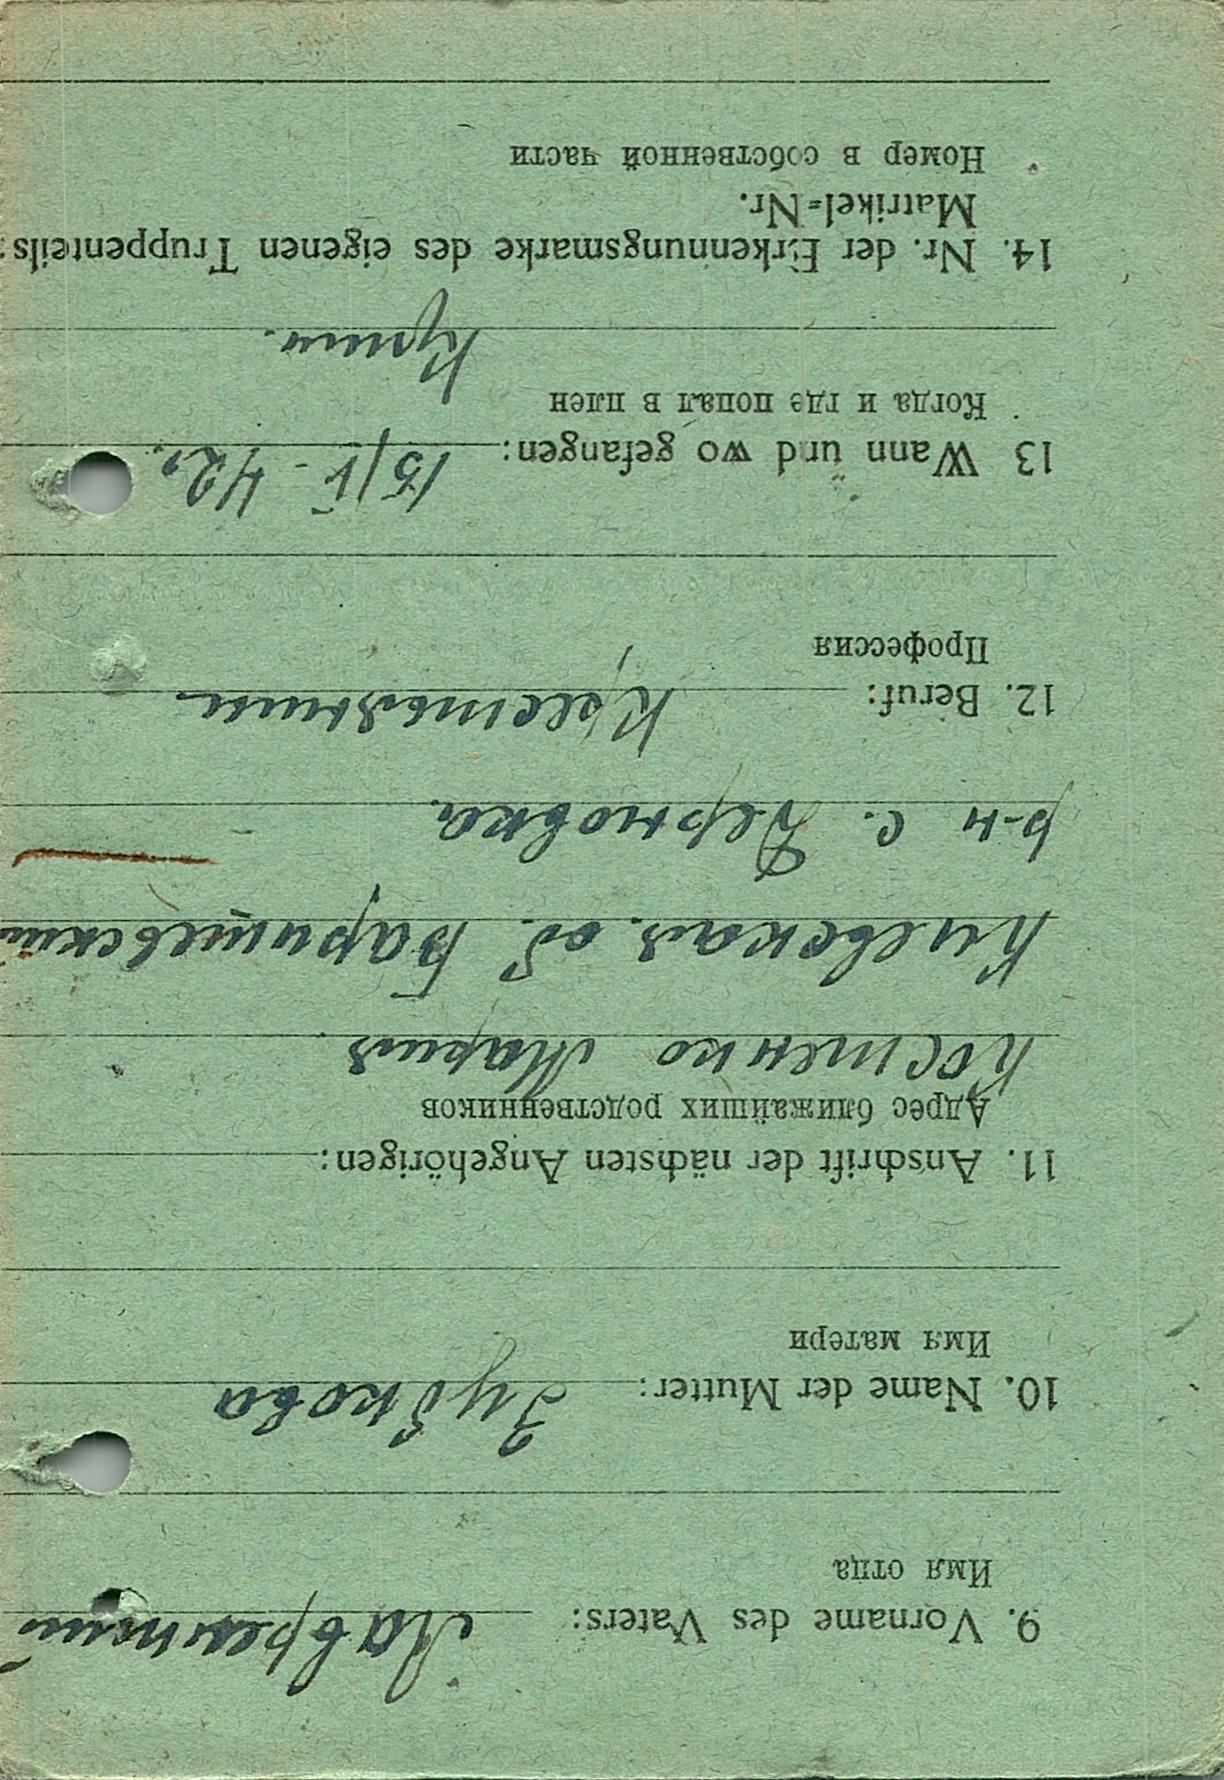 9. Vorname des Vaters: Лаврентий
Имя отца
10. Name der Mutter: Зубкова
Имя матери
11. Anschrift der nächsten Angehörigen:
Адрес ближайших родственников
Костенко Мария
Киевская об. Баришевский
р-н с. Дерновка
12. Beruf: Крестьянин
Профессия
13 Wann und wo gefangen: 15/V-42г.
Когда и где попал в плен
Крым.
14. Nr. der Erkennungsmarke des eigenen Truppenteils:
Matrikel=Nr.
Номер в собственной части